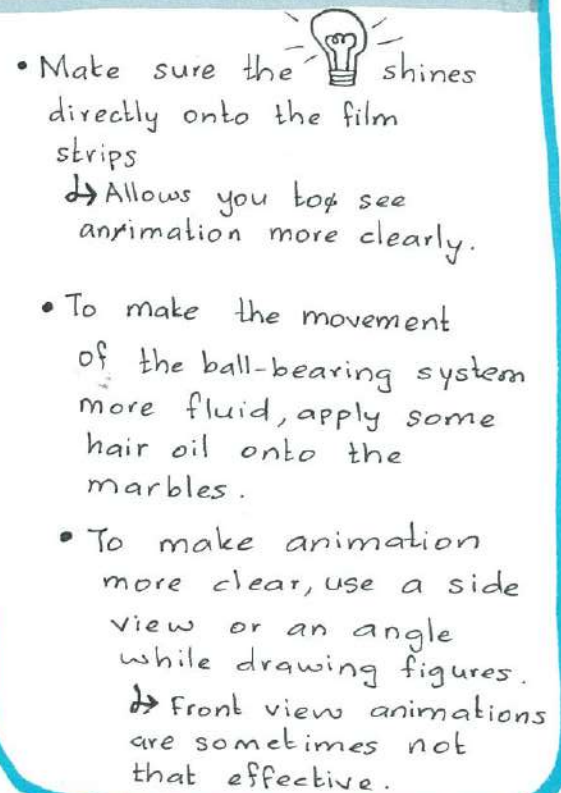 • Make sure the shines
directly onto the film
strips
↳ Allows you to see
animation more clearly.
• To make the movement
of the ball-bearing system
more fluid, apply some
hair oil onto the
marbles.
• To make animation
more clear, use a side
view or an angle
while drawing figures.
↳ Front view animations
are sometimes not
that effective.